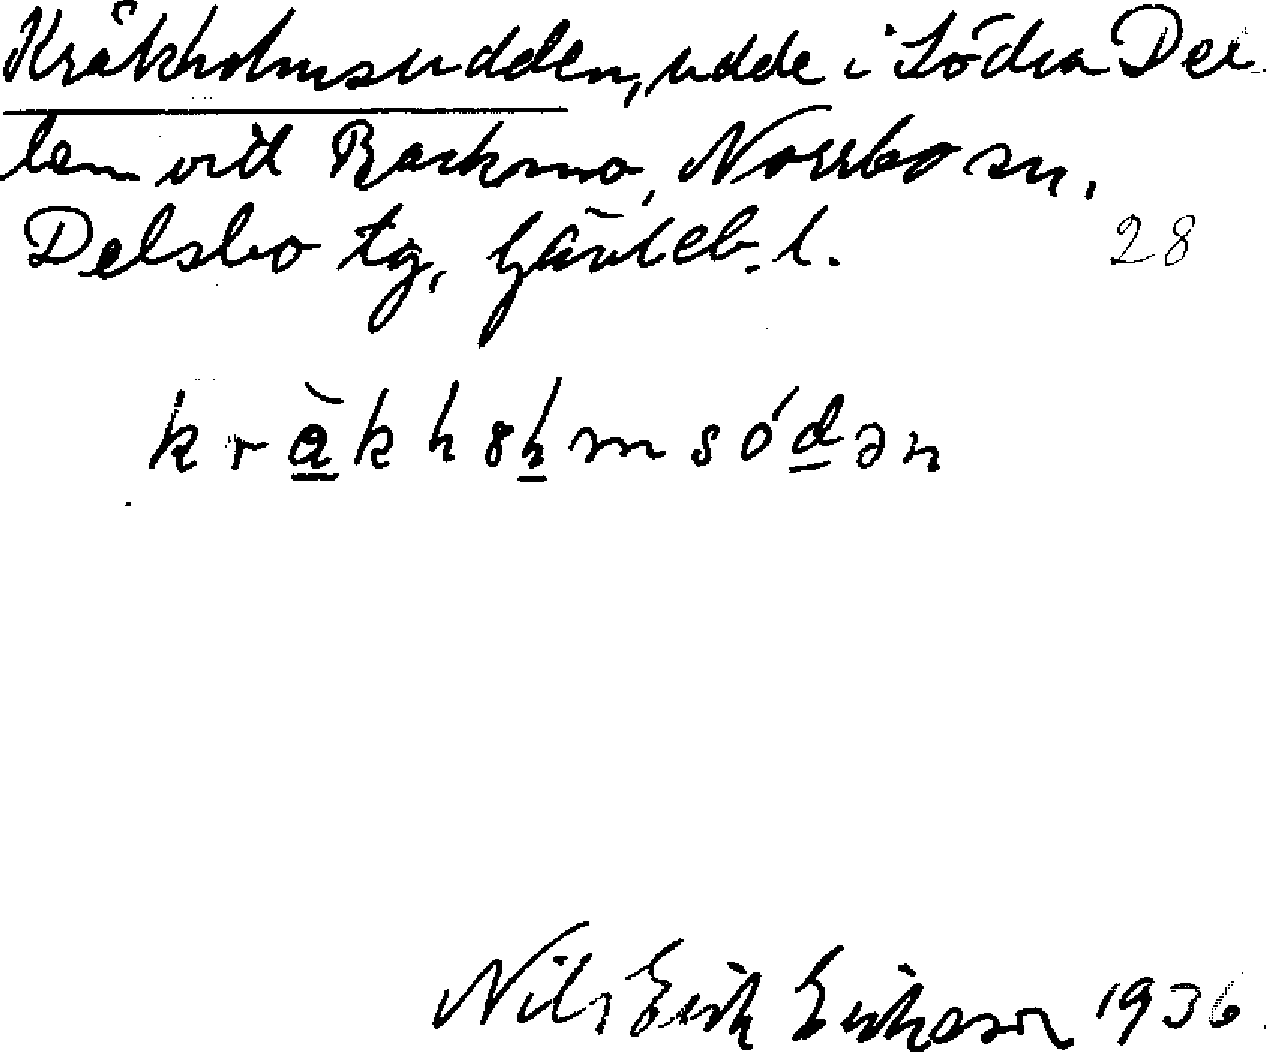 Kråkholmsudden, udde i Södra Del-
len vid Backmo, Norrbo sn,
Delsbo tg, Gävleb. l. 28
kràkhɵlmsódən
Nils Erik Erikson 1936.